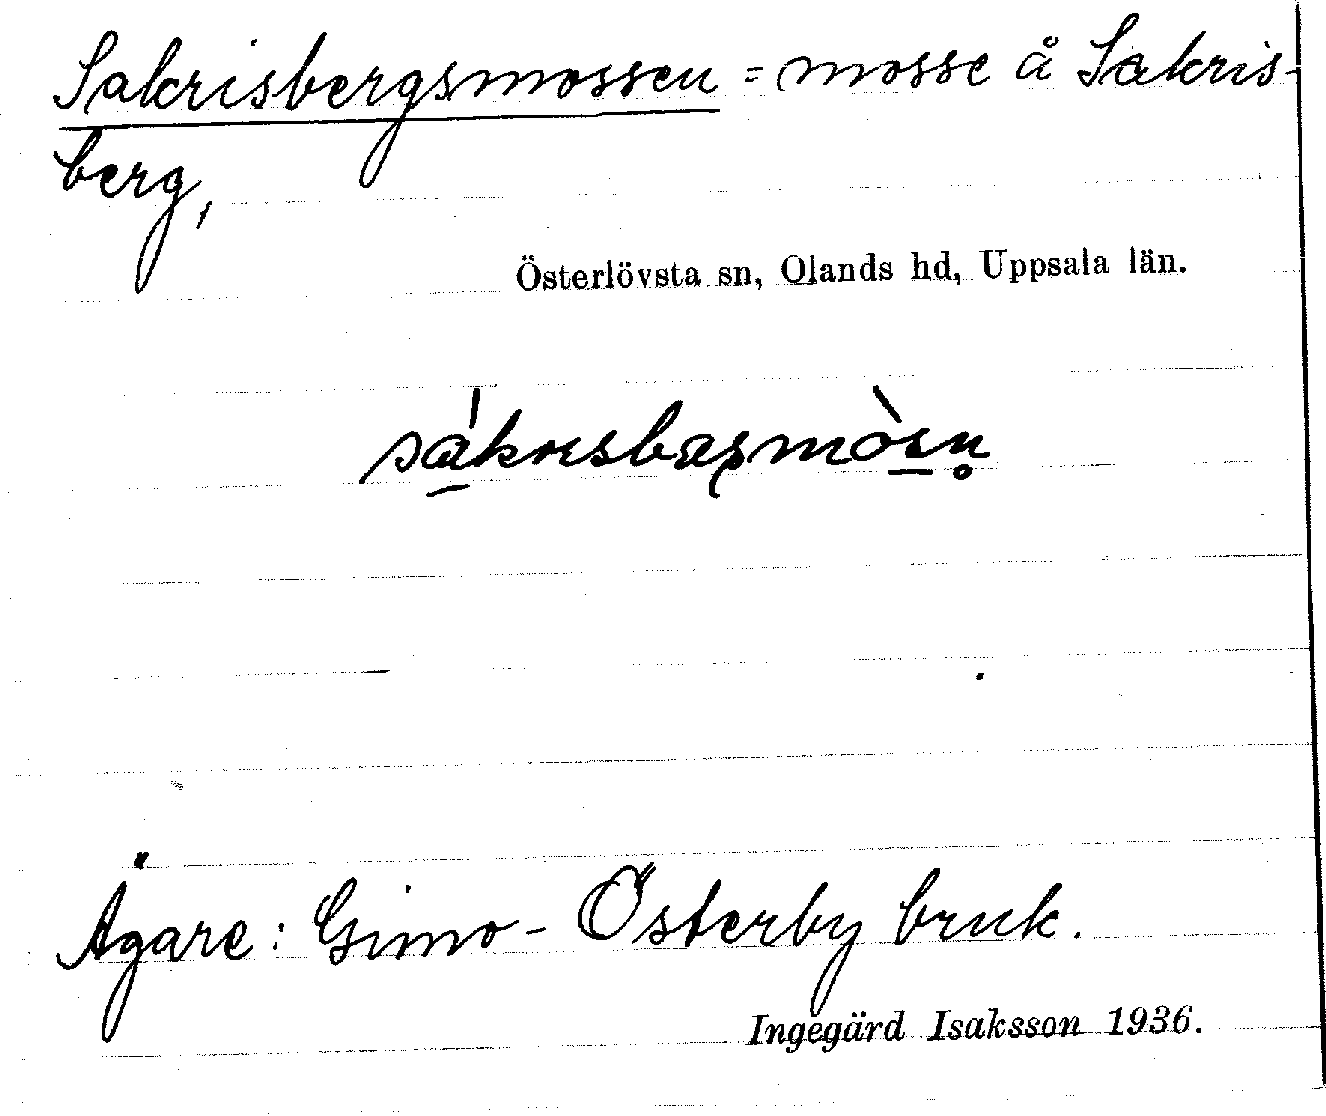 Sakrisbergsmossen = mosse å Sakris-
berg,
Österlövsta sn, Olands hd, Uppsala län.
Ägare: Gimo-Österby bruk.
Ingegärd Isaksson 1936.